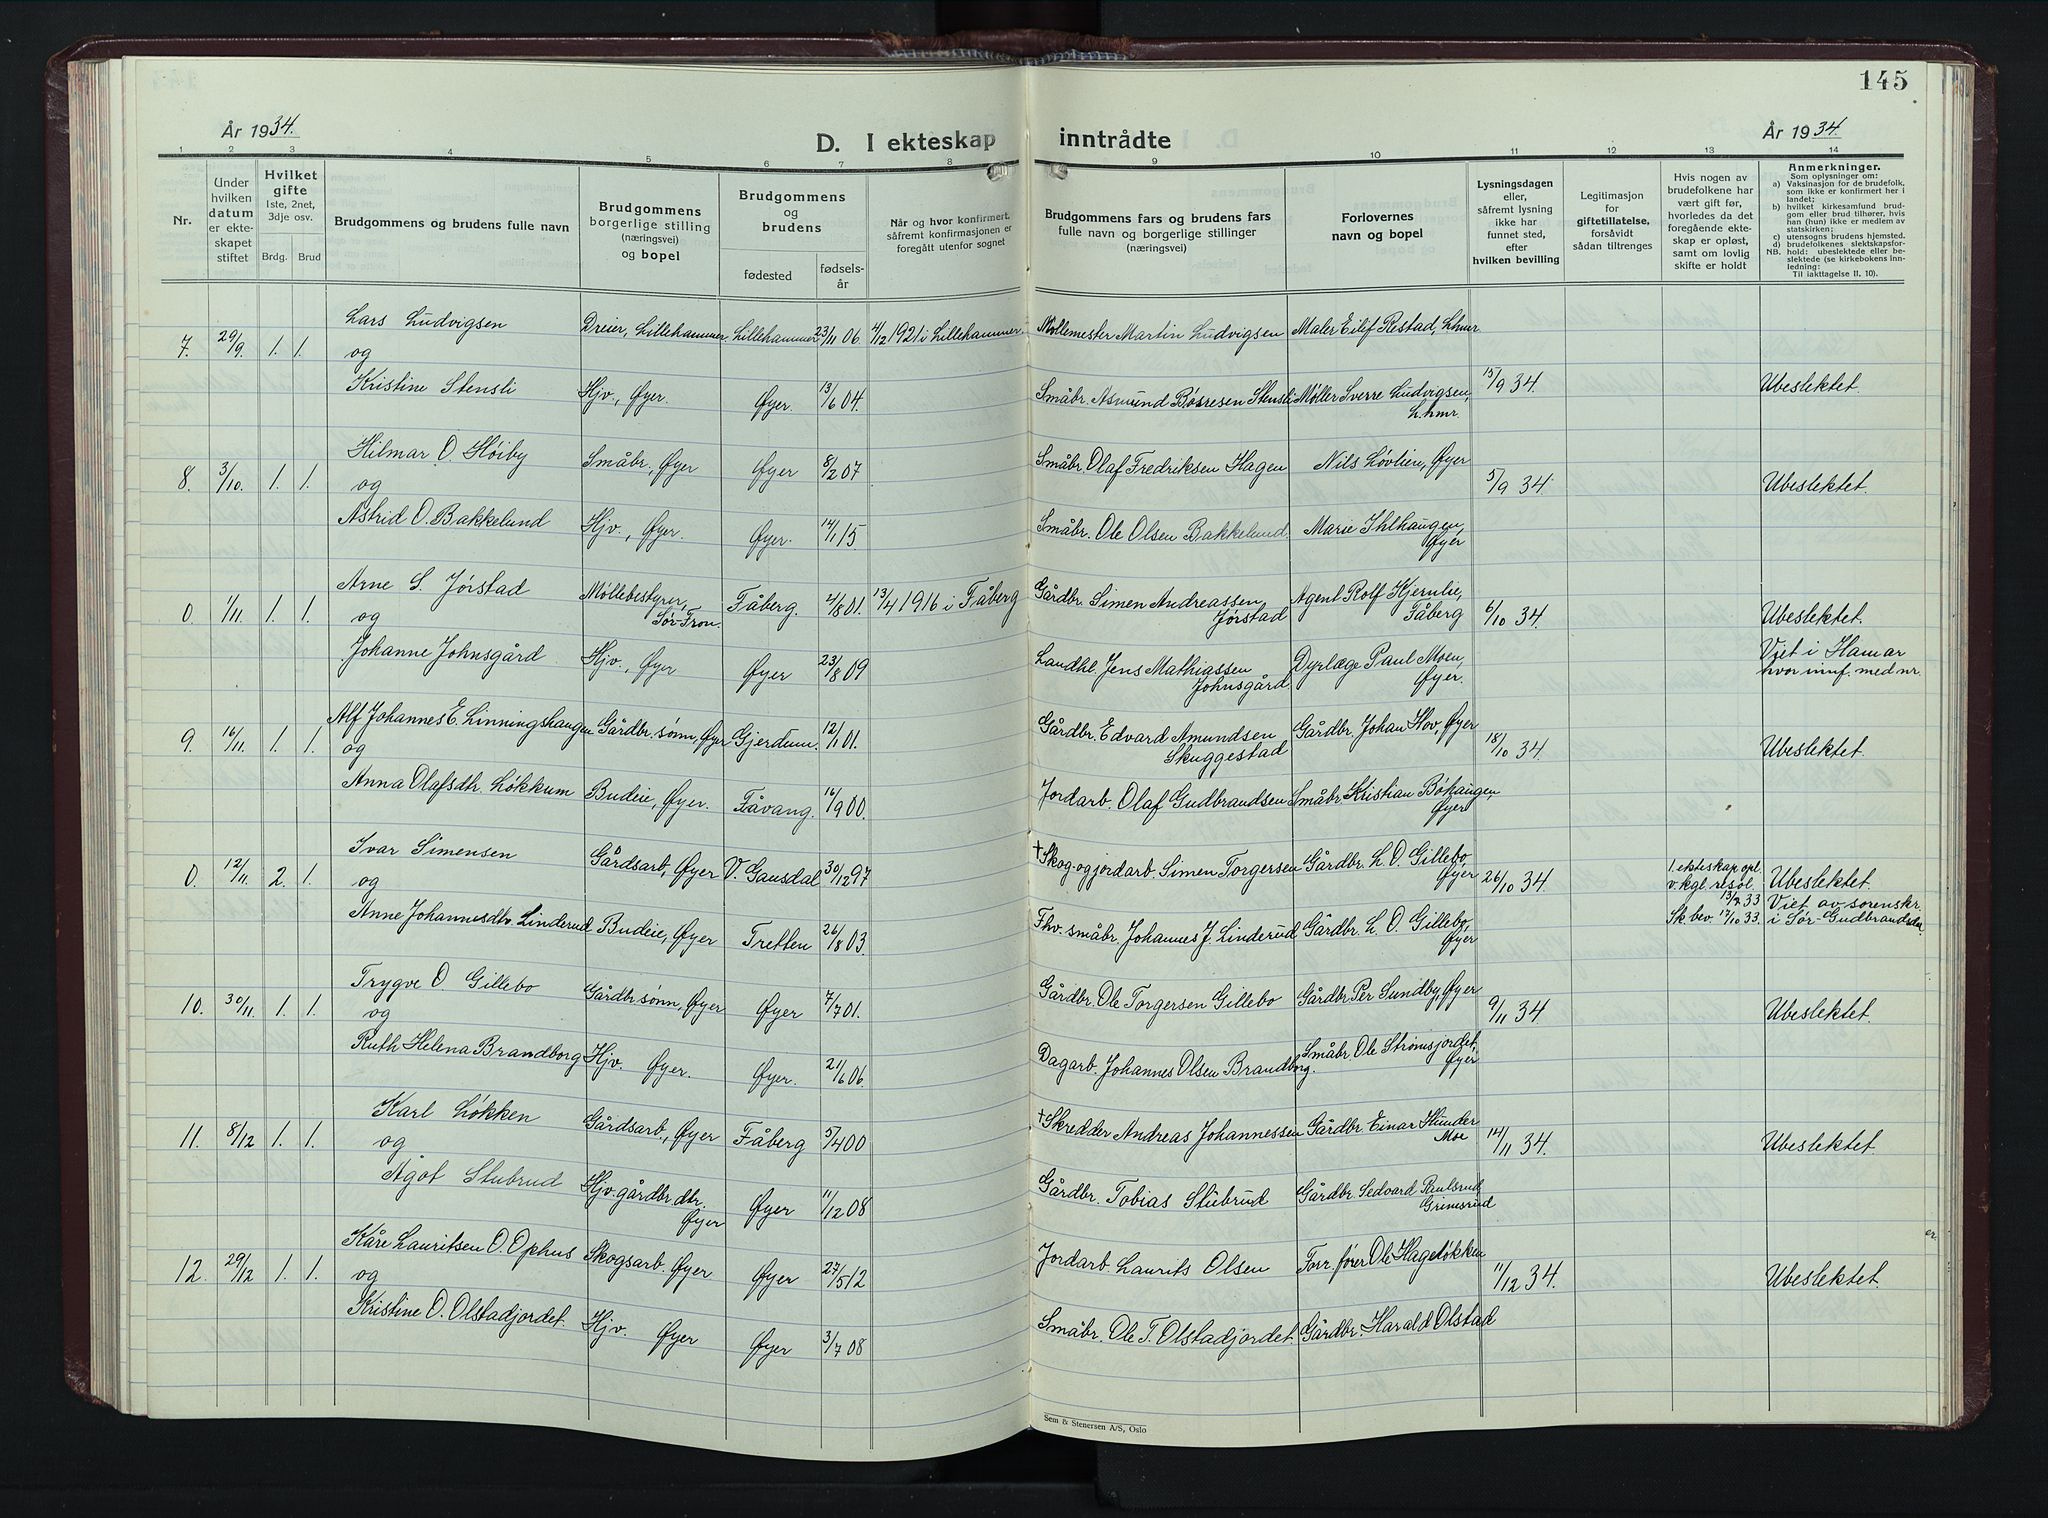 145
År 1934.
D. I ekteskap inntrådte
År 1934.
1 2 3 4 5 6 7 8 9 10 11 12 13 14
Nr.
Under hvilken datum er ekteskapet stiftet
Hvilket gifte 1ste, 2net, 3dje osv.
Brdg. Brud
Brudgommens og brudens fulle navn
Brudgommens borgerlige stilling (næringsvei) og bopel
Brudgommens og brudens
fødested
fødselsår
Når og hvor konfirmert, såfremt konfirmasjonen er foregått utenfor sognet
Brudgommens fars og brudens fars fulle navn og borgerlige stillinger (næringsvei)
Forlovernes navn og bopel
Lysningsdagen eller, såfremt lysning ikke har funnet sted, efter hvilken bevilling
Legitimasjon for giftetillatelse, forsåvidt sådan tiltrenges
Hvis nogen av brudefolkene har vært gift før, hvorledes da det foregående ekteskap er opløst, samt om lovlig skifte er holdt
Anmerkninger.
Som oplysninger om:
a) Vaksinasjon for de brudefolk, som ikke er konfirmert her i landet;
b) hvilket kirkesamfund brudgom eller brud tilhører, hvis han (hun) ikke er medlem av statskirken;
c) utensogns brudens hjemsted.
d) brudefolkenes slektskapsforhold: ubeslektede eller beslektede (se kirkebokens innledning:
NB.
Til iakttagelse II. 10).
Lars Ludvigsen Dreier, Lillehammer Lillehammer 23/11 06 4/12 1921 i Lillehammer. Møllemester Martin Ludvigsen Maler Eilif Restad, Lhmr
7. 29/9. 1. 1. og 15/9 34. Ubeslektet.
Kristine Stensli Hjv., Øyer. Øyer. 13/6 04. Småbr. Asmund Børresen Stensli Møller Sverre Ludvigsen, Lhmr.
Hilmar O. Høiby Småbr., Øyer Øyer 8/2 07 Småbr. Olaf Fredriksen Hagen Nils Løvlien, Øyer
8. 3/10. 1. 1. og 5/9 34. Ubeslektet.
Astrid O. Bakkelund Hjv., Øyer. Øyer. 14/1 15 Småbr. Ole Olsen Bakkelund. Marie Ihlhaugen, Øyer
Arne S. Jørstad Møllebestyrer, Sør-Fron. Fåberg. 2/8 01. 13/4 1916 i Fåberg Gårdbr. Simen Andreassen Jørstad Agent Rolf Hjernlie, Fåberg
0. 1/11. 1. 1. og 6/10 34. Ubeslektet.
Johanne Johnsgård Hjv., Øyer Øyer 23/8 09 Landhl. Jens Mathiassen Johnsgård. Dyrlæge Paul Moen, Øyer. Viet i Hamar hvor innf. med nr.
Alf Johannes E. Linningshaugen Gårdbr. sønn, Øyer Gjerdum. 12/1 01. Gårdbr. Edvard Amundsen Skuggestad Gårdbr. Johan Hov, Øyer
9. 16/11. 1. 1. og 18/10 34. Ubeslektet.
Anna Olafsdtr. Løkkum Budeie, Øyer. Fåvang. 16/9 00. Jordarb. Olaf Gudbrandsen Småbr Kristian Bøhaugen, Øyer
Ivar Simensen Gårdsarb, Øyer V. Gausdal 30/12 97 † Skog-og jordarb. Simen Torgersen Gårdbr. L. O. Gillebo, Øyer
0. 12/11. 2. 1. og 26/10 34. 1. ekteskap opl. v. kgl. resol. 13/7 33 Sk bev 17/10 33. Ubeslektet. Viet av sorenskr. i Sør-Gudbrandsdal.
Anne Johannesdtr. Linderud Budeie, Øyer Tretten 26/8 03. Fhv. småbr. Johannes J. Linderud Gårdbr. L. O. Gillebo, Øyer
Trygve O. Gillebo Gårdbr sønn, Øyer Øyer 7/7 01. Gårdbr. Ole Torgersen Gillebo Gårdbr Per Sundby, Øyer
10. 30/11. 1. 1. og 9/11 34. Ubeslektet.
Ruth Helena Brandborg Hjv. Øyer. Øyer. 21/6 06. Dagarb. Johannes Olsen Brandborg. Småbr. Ole Strømsjordet, Øyer
Karl Løkken Gårdsarb., Øyer Fåberg 5/4 00 † Skredder Andreas Johannessen Gårdbr Einar Hunder Moe
11. 8/12 1. 1. og 14/11 34. Ubeslektet.
Ågot Stubrud Hjv. gårdbr. dtr. Øyer Øyer 11/12 08 Gårdbr. Tobias Stubrud Gårdbr. Sedvard Paulsrud Grimsrud
Kåre Lauritsen O. Ophus Skogsarb. Øyer Øyer 27/5 12 Jordarb Laurits Olsen Forr. fører Ole Hageløkken
12. 29/12 1. 1. og 11/12 34. Ubeslektet.
Kristine O. Olstadjordet. Hjv. Øyer Øyer 3/7 08 Småbr. Ole T. Olstadjordet. Gårdbr. Harald Olstad
Sem & Stenersen A/S, Oslo